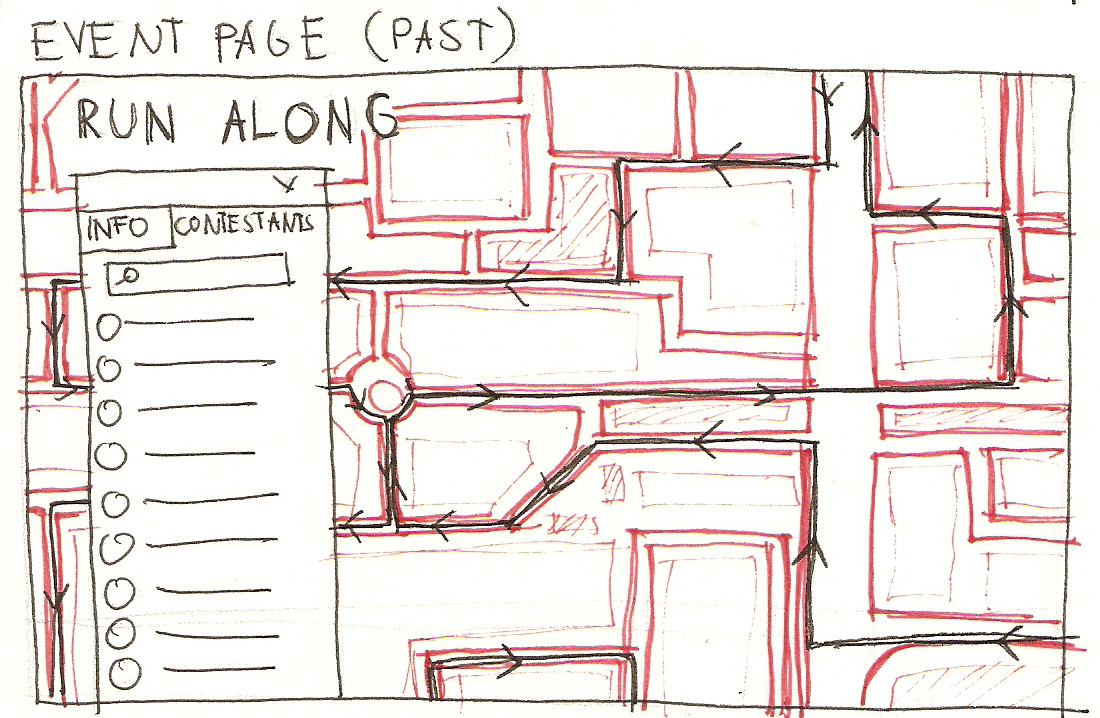 EVENT PAGE (PAST)
RUN ALONG
INFO CONTESTANTS